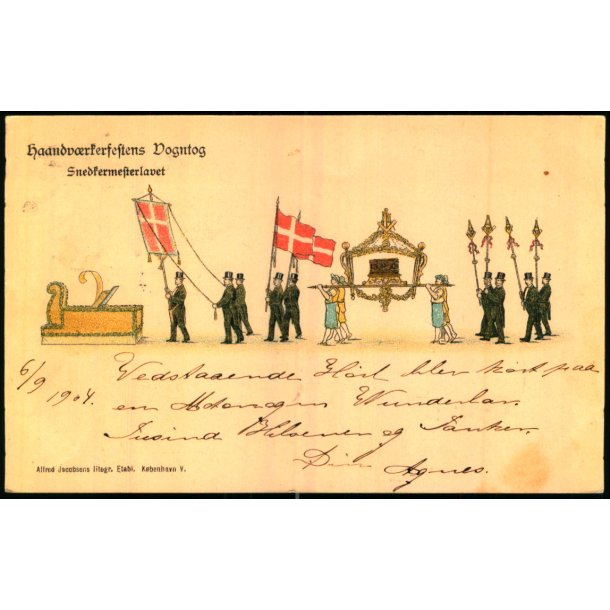 Haandværkerfestens Vogntog
Snedkermesterlavet
6/9
1904.
Vedstaaende blev kørt paa
en
Tusind Hilsener og Tanker.
Din Agnes.
Alfred Jacobsens litogr. Etabl. København V.